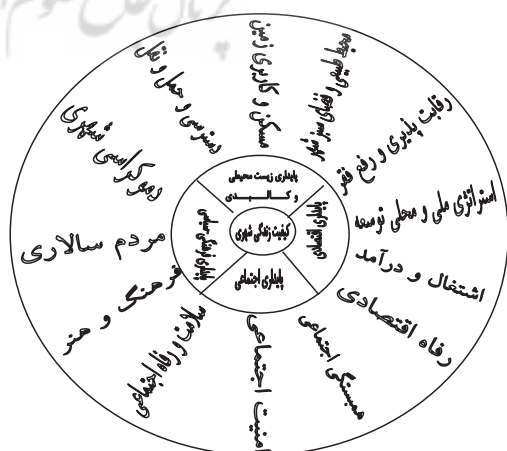 کیفیت زندگی شهری
پایداری زیست محیطی
و کـالـبـدی
پایداری اقتصادی
پایداری اجتماعی
پایداری
مسکن و کاربری زمین
محیط طبیعی و فضای سبز شهر
رقابت پذیری و رفع فقر
استراتژی ملی و محلی توسعه
اشتغال و درآمد
رفاه اقتصادی
همبستگی اجتماعی
امنیت اجتماعی
سلامت و رفاه اجتماعی
فرهنگ و هنر
مردم سالاری
دموکراسی شهری
دسترسی و حمل و نقل